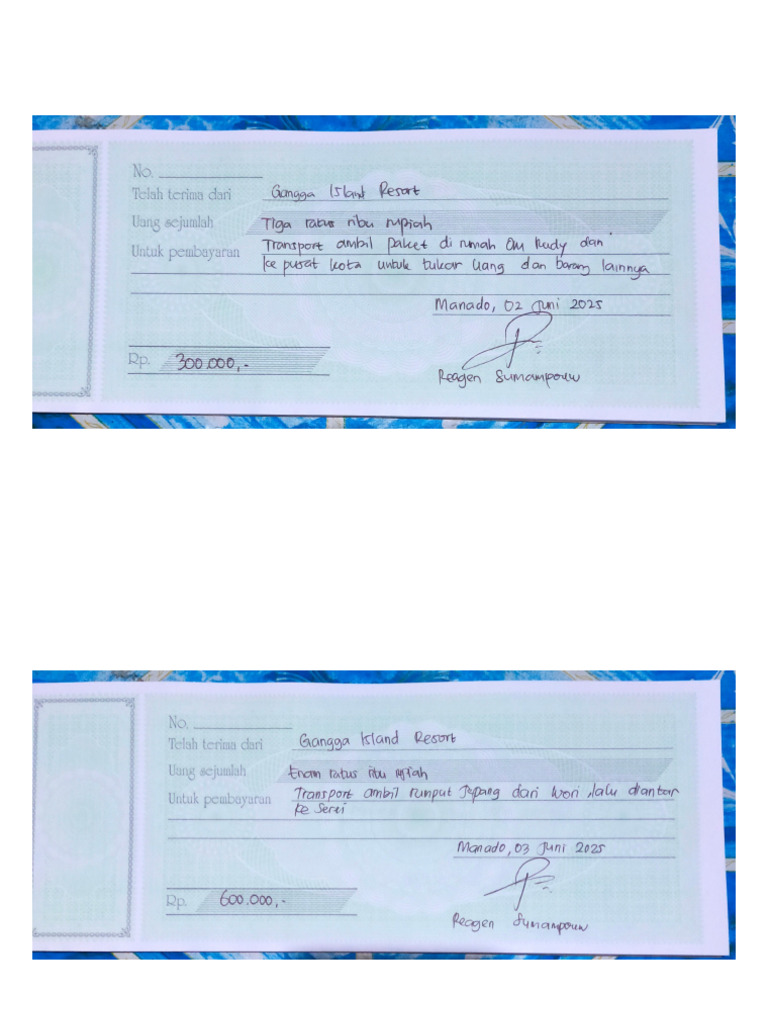 No.
Telah terima dari Gangga Island Resort
Uang sejumlah Tiga ratus ribu rupiah
Untuk pembayaran Transport ambil paket di rumah Om Rudy dan
ke pusat kota untuk tukar uang dan barang lainnya
Manado, 02 Juni 2025
Rp. 300.000,-
Reagen Sumampouw
No.
Telah terima dari Gangga Island Resort
Uang sejumlah Enam ratus ribu rupiah
Untuk pembayaran Transport ambil rumput Jepang dari Wori, lalu diantar
ke Serei
Manado, 03 Juni 2025
Rp. 600.000,-
Reagen Sumampouw